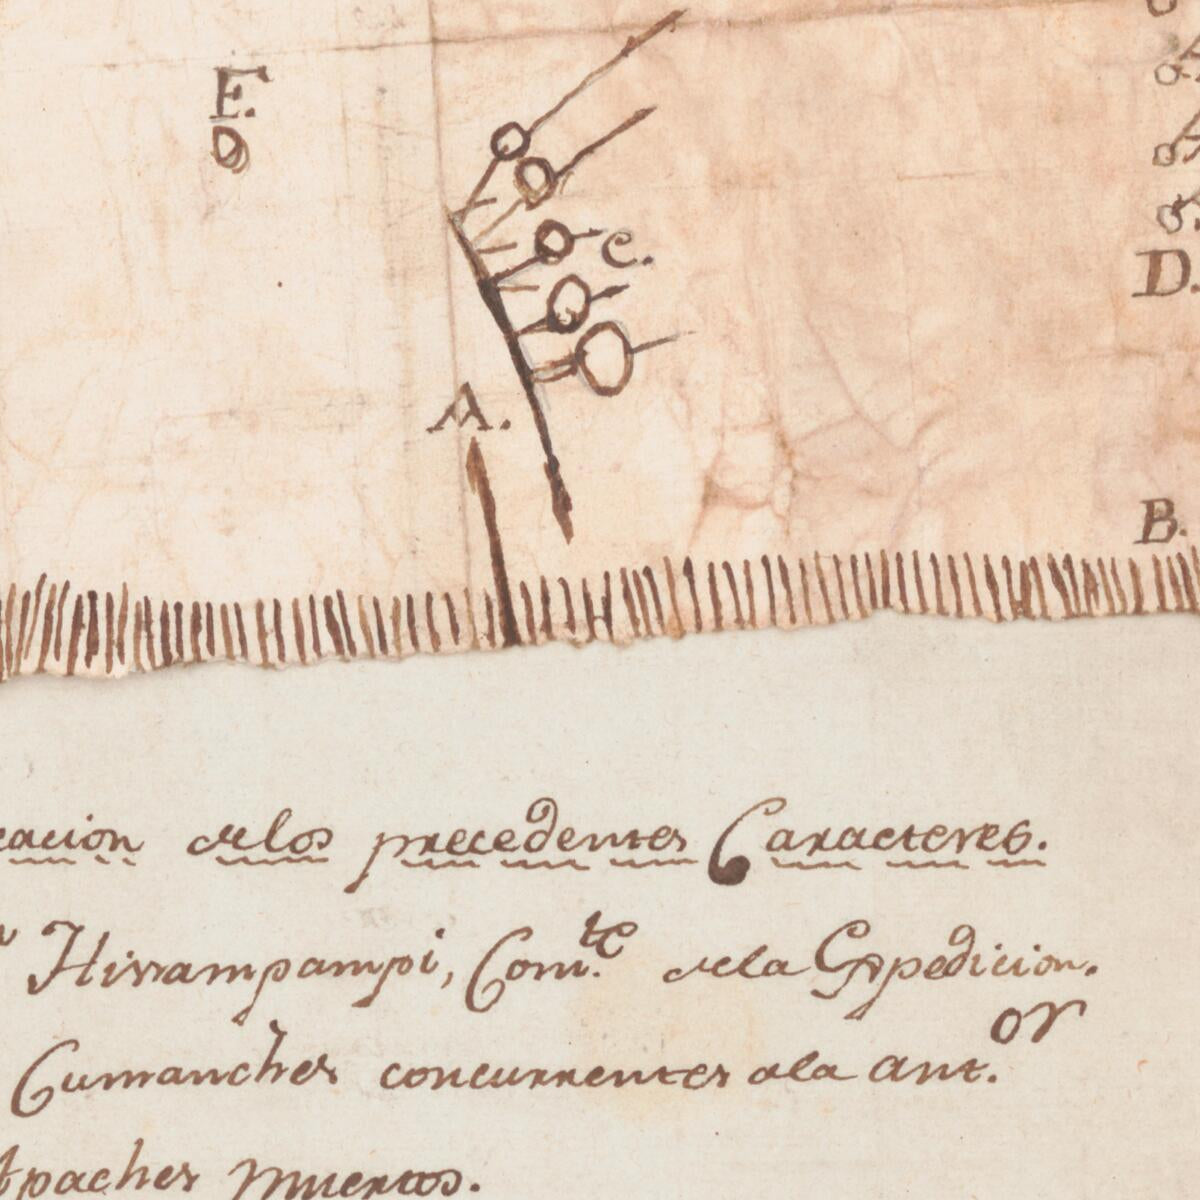 E.
C.
D.
A.
B.
cacion delos precedentes Caracteres.
Hisrampampi, Com.te dela Expedicion.
Cumanches concurrentes ala ant.or
Apaches muertos.